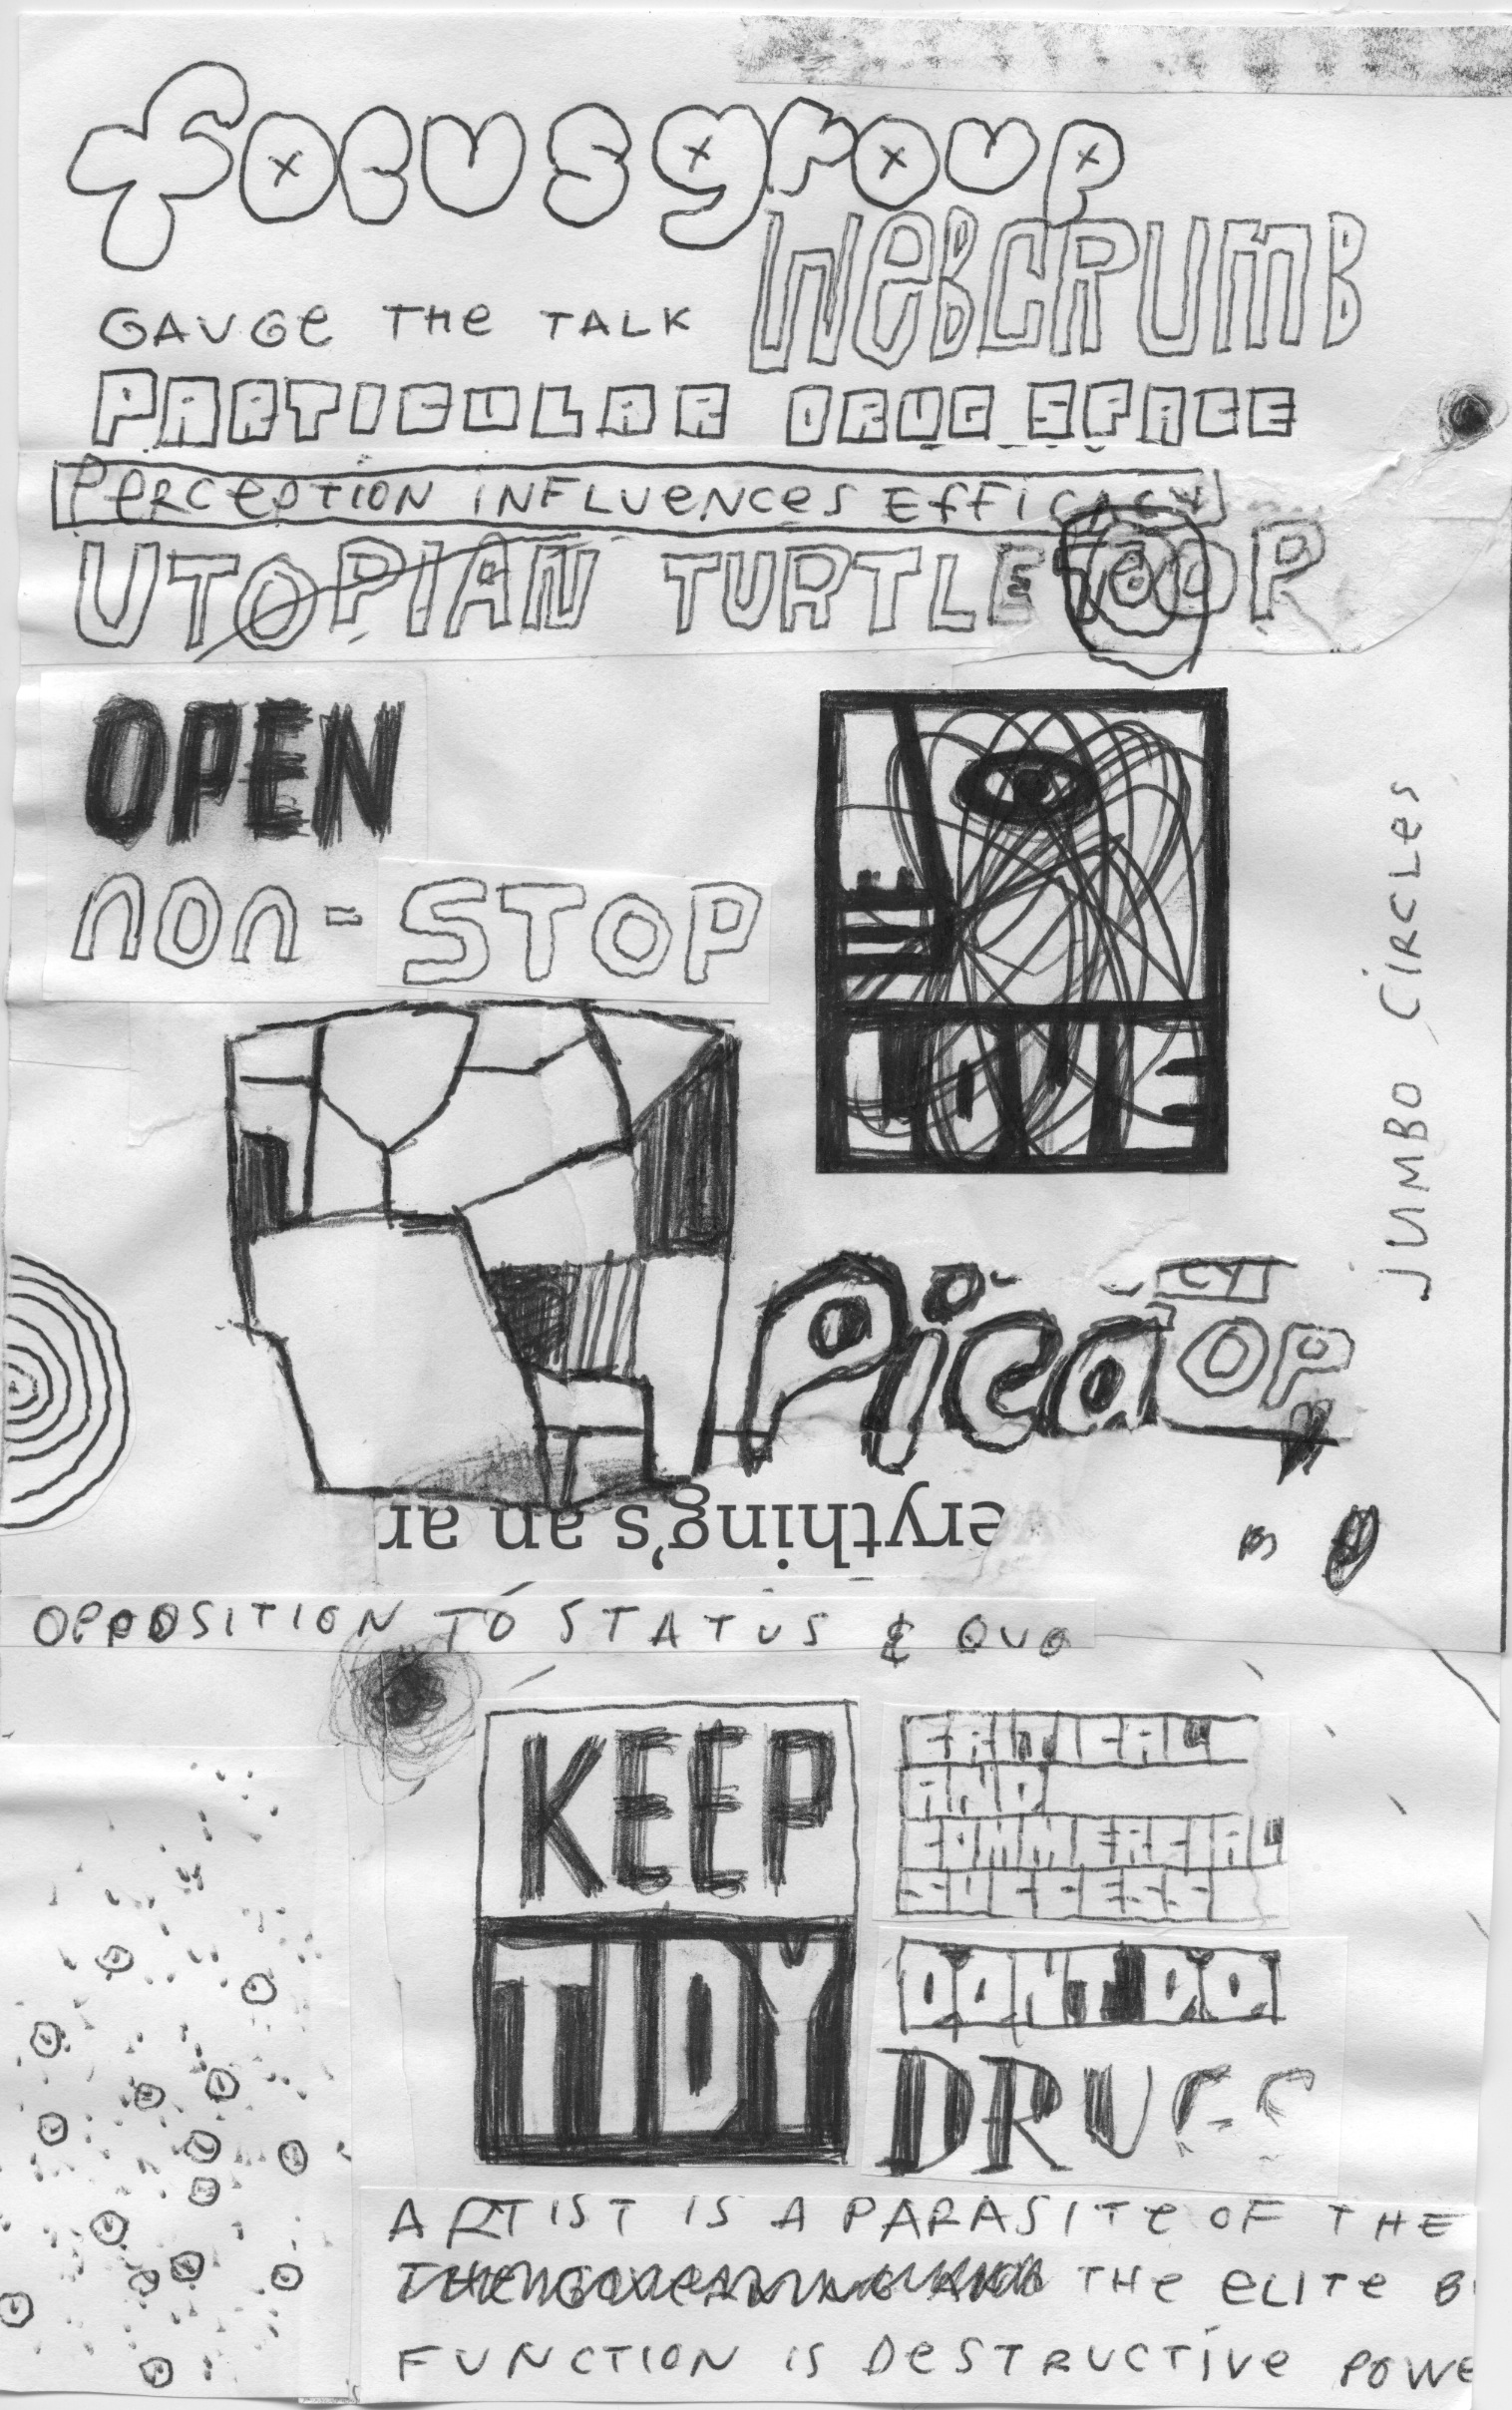 focus group
WeBCRUMB
GAUGe THe TALK
PARTICULAR DRUG SPACE
PeRCePTION INFLUeNCeS EfFICACY
UTOPIAN TURTLETOP
OPEN
non-STOP
LOVE
JUMBO CIRCLeS
Pica
CY
OP
erything's an ar
OPPOSITION TO STATUS & QUO
KEEP
TIDY
AND
COMMERCIAL
SUCCESS
DONT DO
DRUGS
ARTIST IS A PARASITe OF THE
THe eLITe B
FUNCTION IS DeSTRUCTive POWE